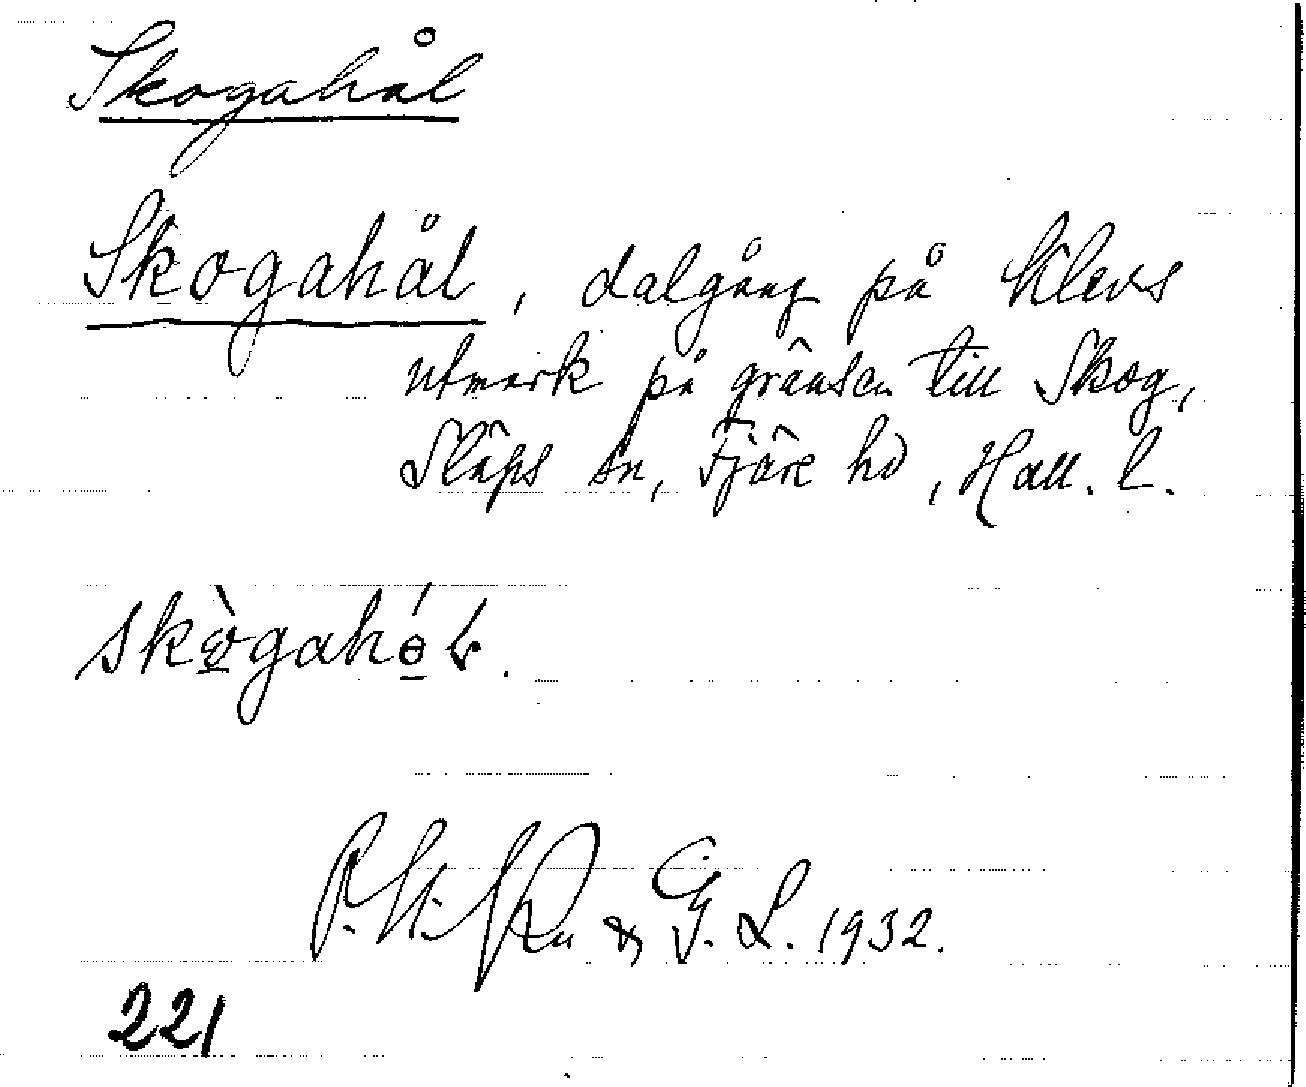 Skogahål
Skogahål, dalgång på Klevs
utmark på gränsen till Skog,
Släps sn, Fjäre hd, Hall. l.
skògahó
& G. L. 1932.
221